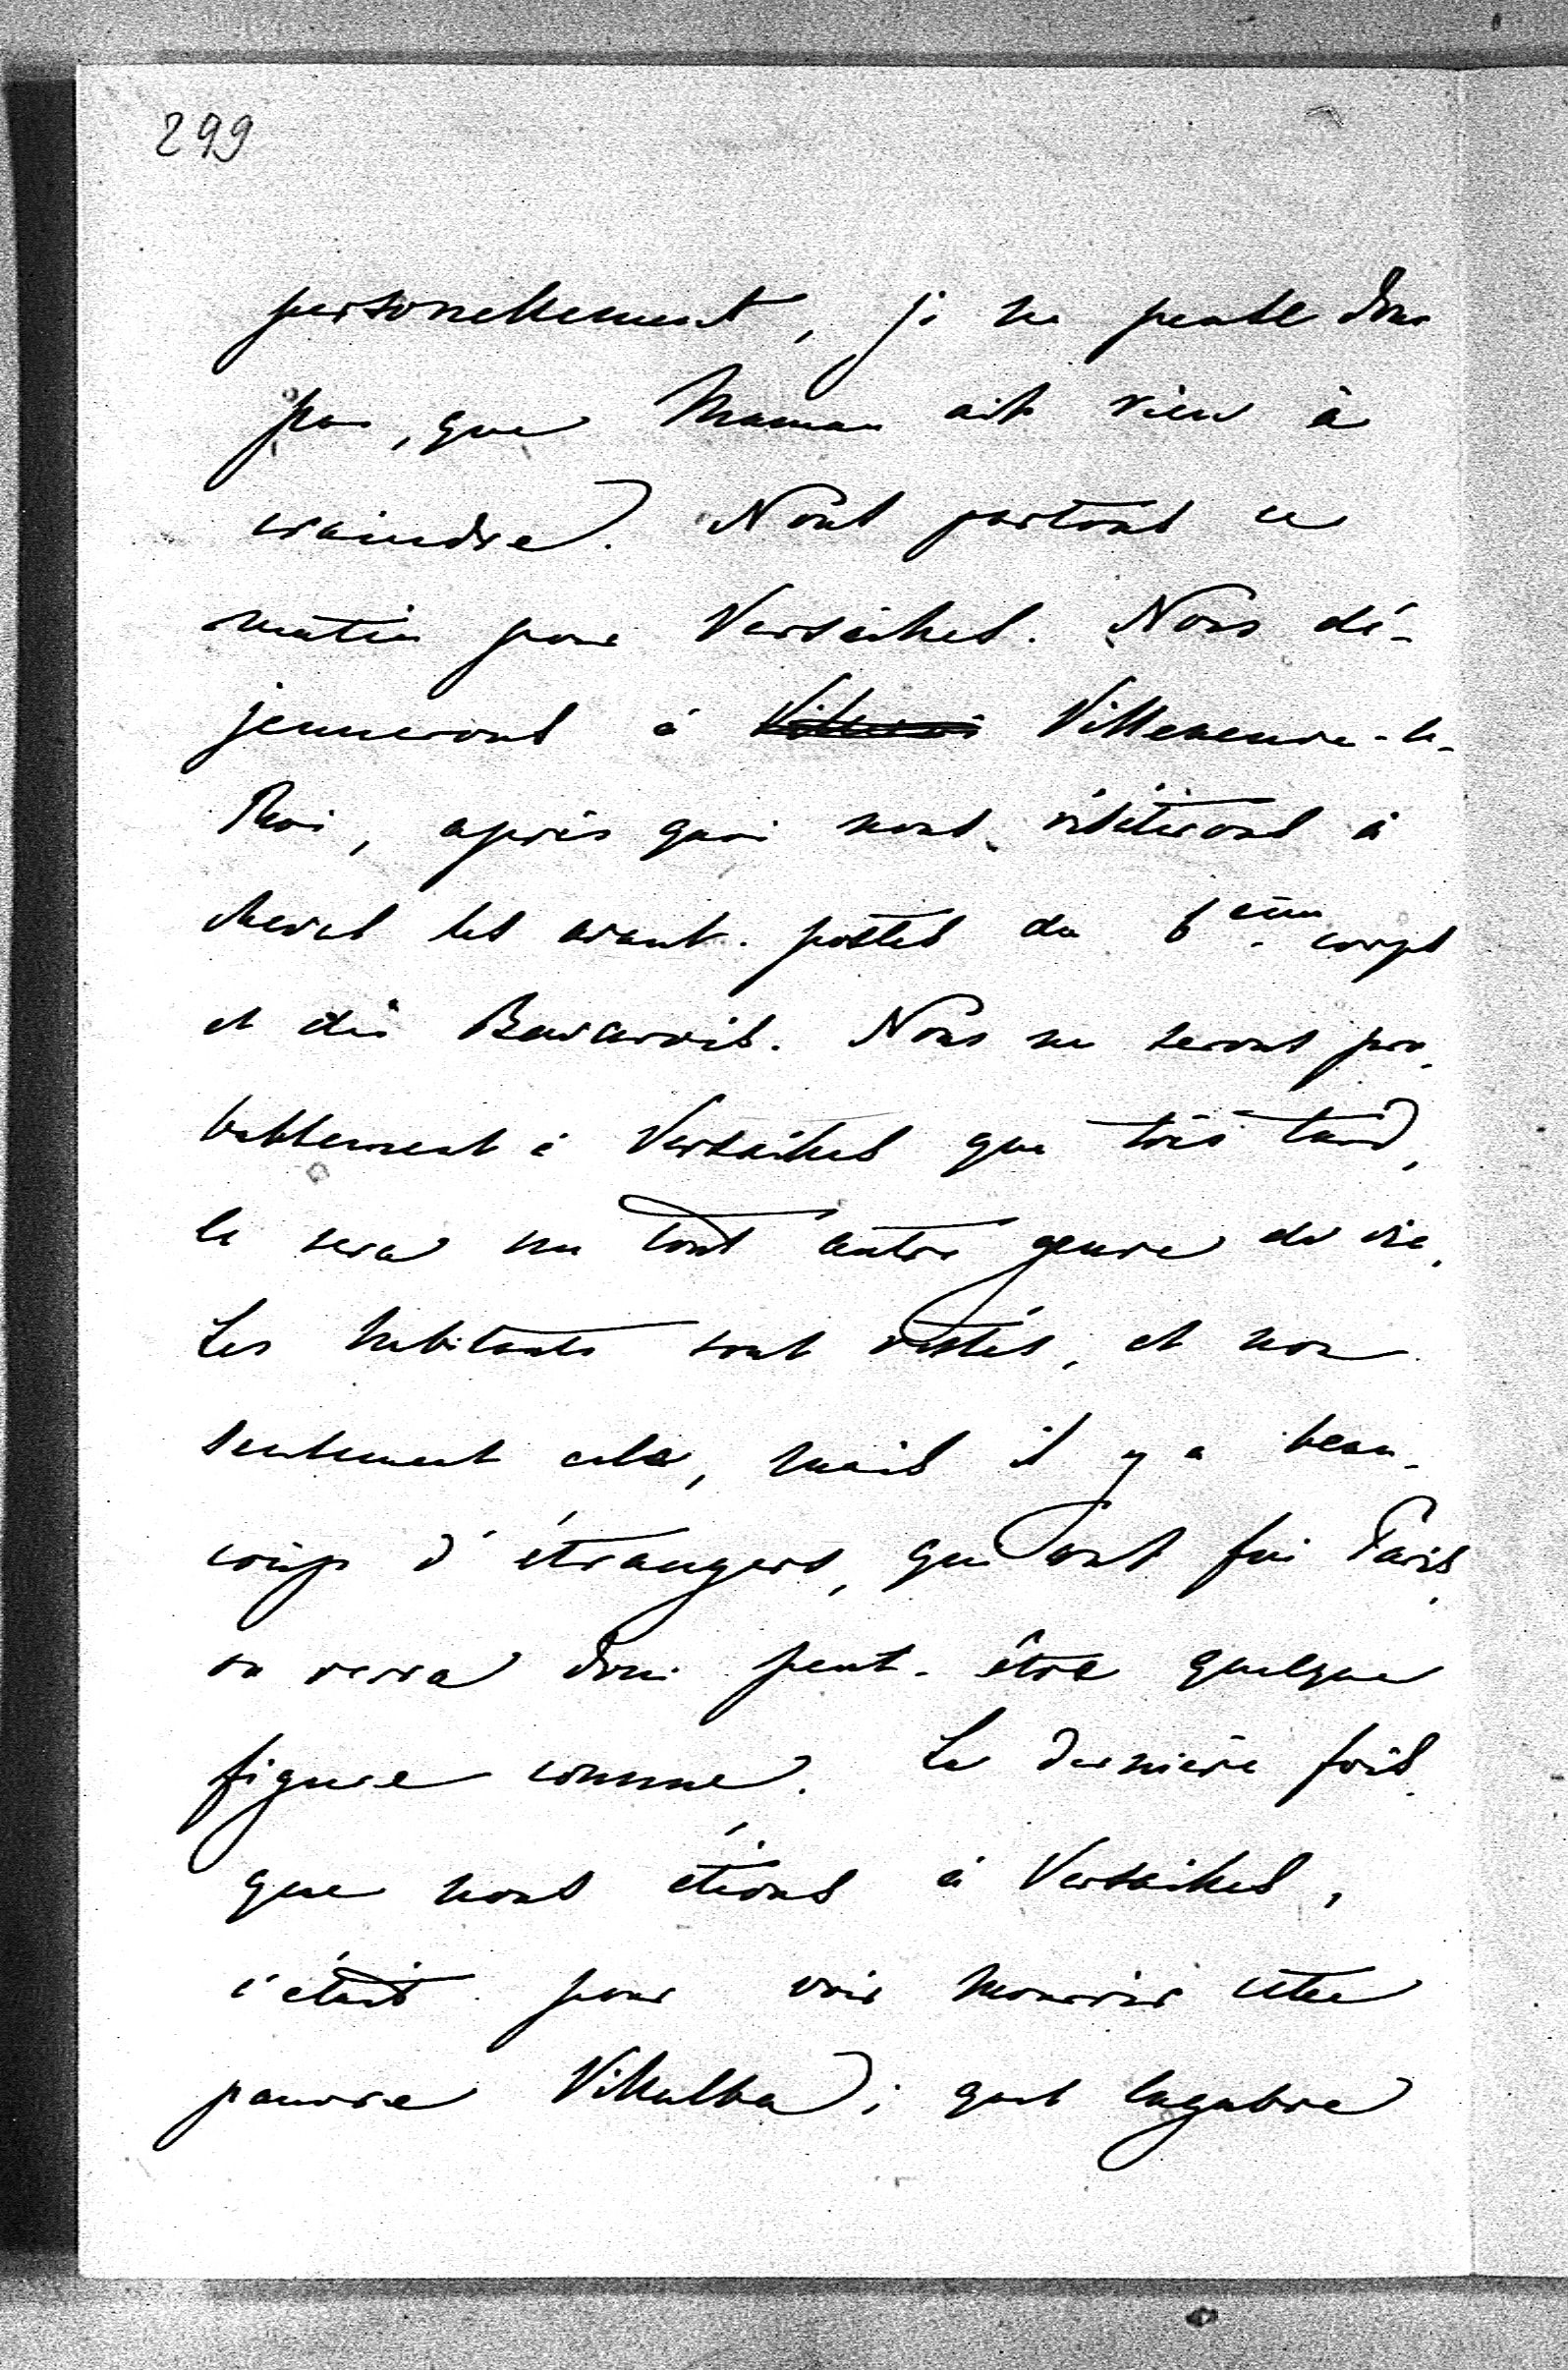 299
personellement, je ne pense donc
pas, que Maman ait rien à
craindre. Nous partons ce
matin pour Versailles. Nous dé-
jeunerons à Villeneuve-le-
Roi, après quoi nous visiterons à
cheval les avant-postes du 6ème corps
et des Bavarois. Nous ne serons pro-
bablement à Versailles que très tard,
le sera un tout autre genre de vie.
Les habitants sont restés, et non
seulement cela, mais il y a beau-
coup d'étrangers, qui ont fui Paris,
on verra donc peut-être quelque
figure connue. La dernière fois
que nous étions à Versailles,
c'était pour voir mourir cette
pauvre Villalba; quel lugubre